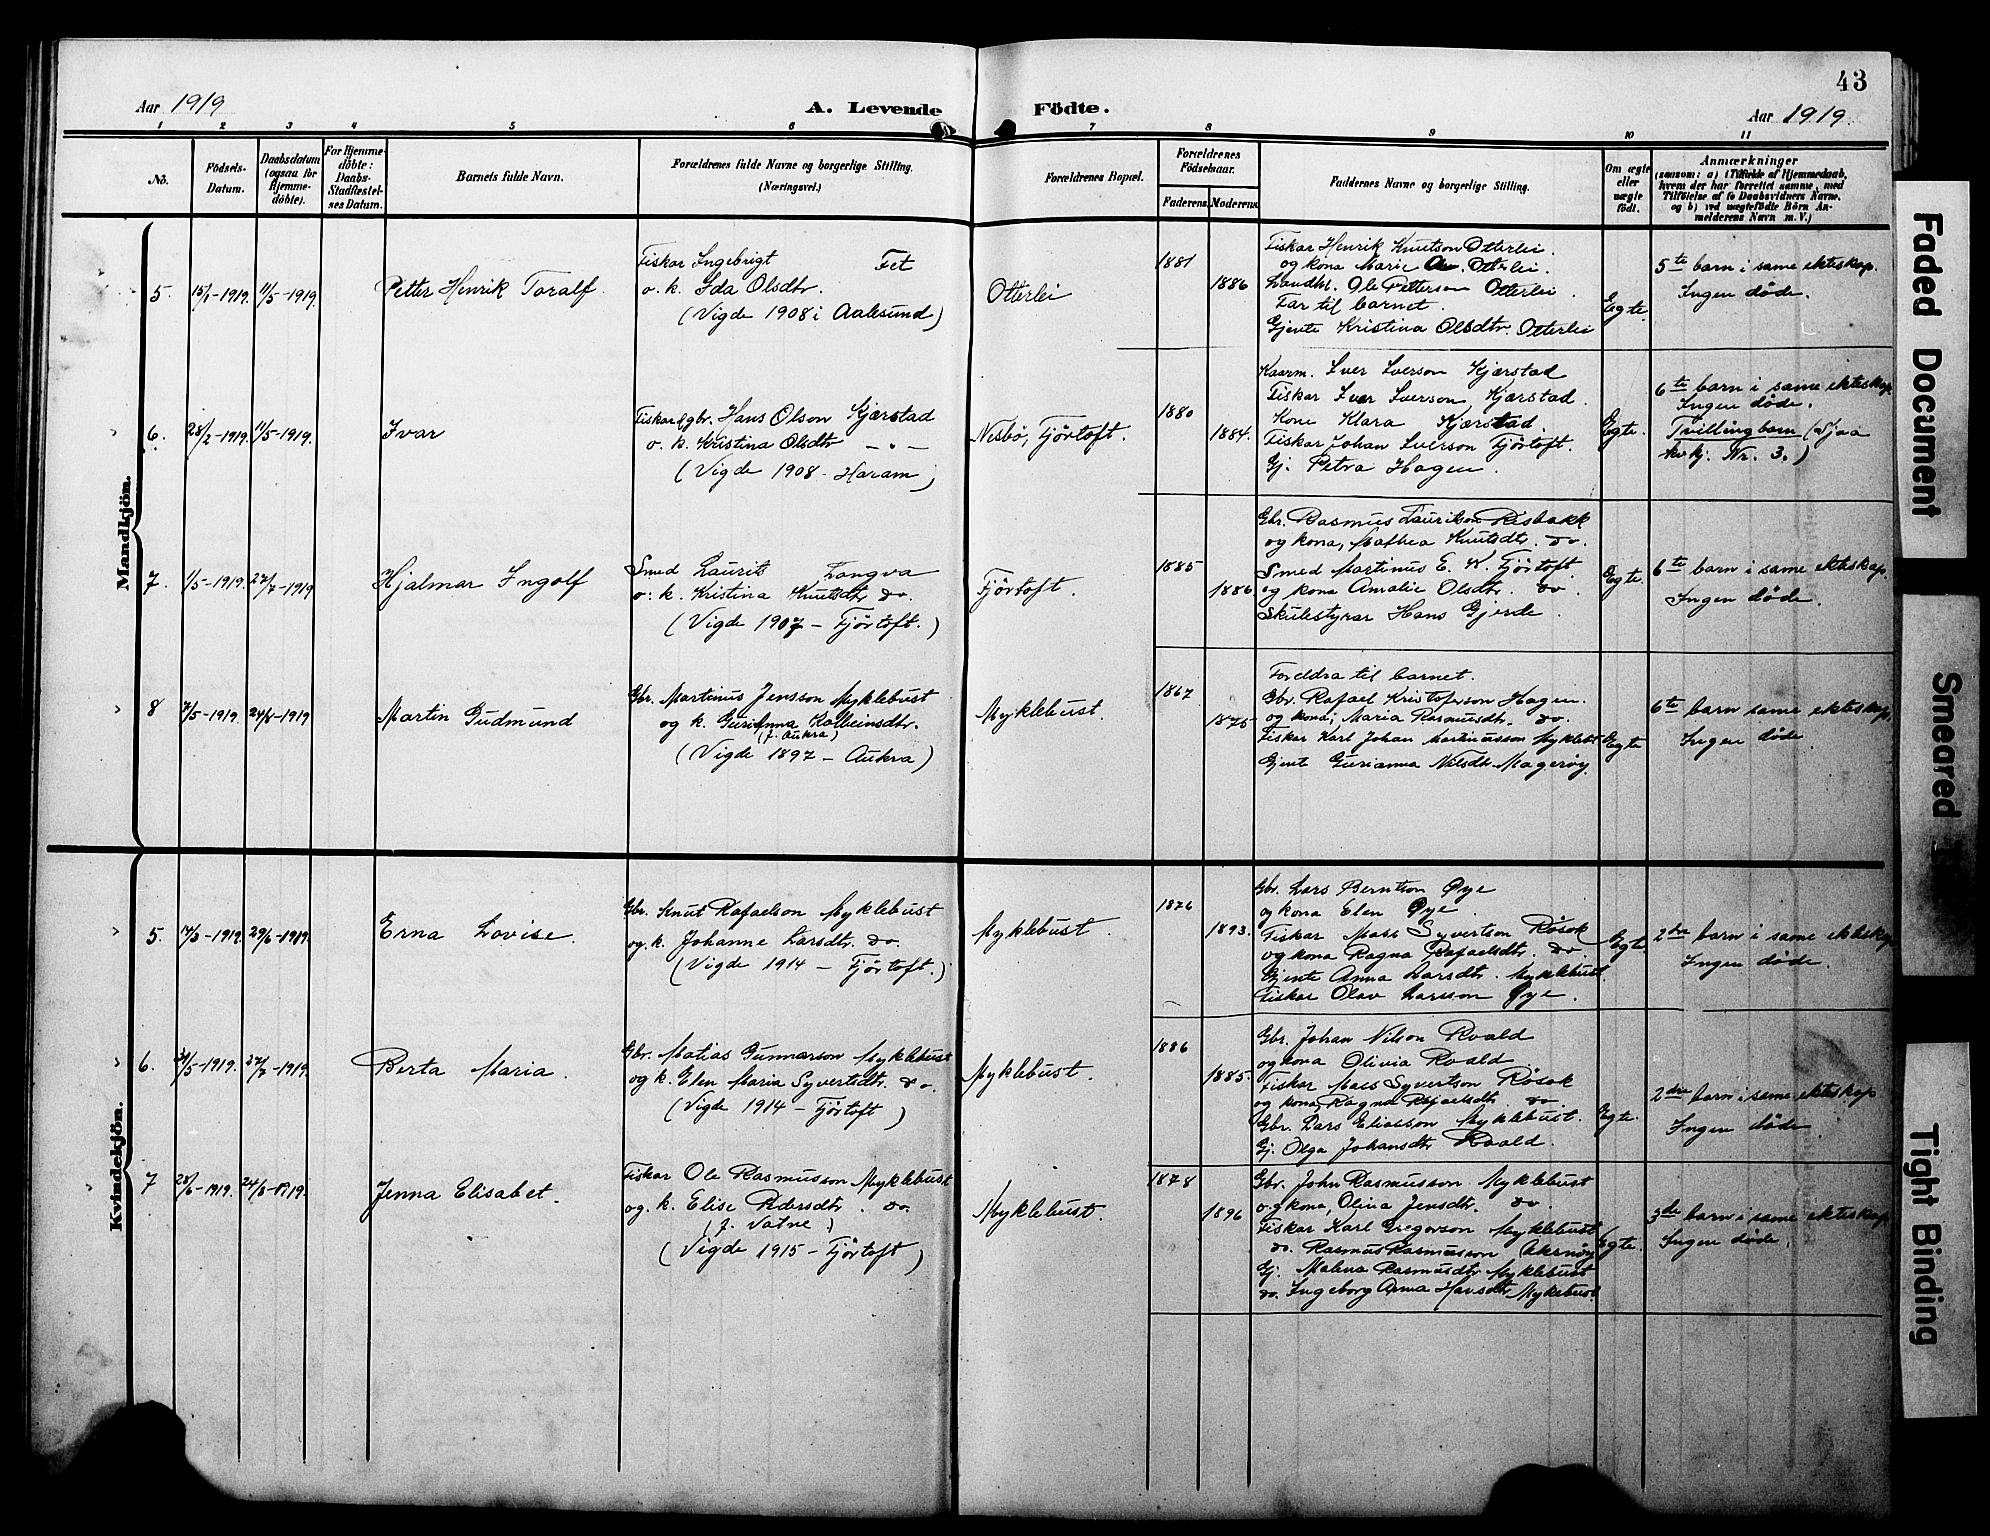 43
Aar 1919
A. Levende Födte.
Aar 1919.
1 2 3 4 5 6 7 8 9 10 11
No.
Födsels-Datum.
Daabsdatum (ogsaa for Hjemme-döbte).
For Hjemme-döbte: Daabs-Stadfæstel-ses Datum.
Barnets fulde Navn.
Forældrenes fulde Navne og borgerlige Stilling. (Næringsvei.)
Forældrenes Bopæl.
Forældrenes Födselsaar.
Faderens. Moderens.
Faddernes Navne og borgerlige Stilling.
Om ægte eller uægte födt.
Anmærkninger
(saasom: a) i Tilfælde af Hjemmedaab, hvem der har forrettet samme, med Tilföielse af to Daabsvidners Navne, og b) ved uægtefödte Börn An-melderens Navn m. V.)
Mandkjön.
5. 15/1-1919. 11/5-1919.
Petter Henrik Toralf.
Fiskar Ingebrigt Fet
o. k. Ida Olsdtr.
(Vigde 1908 i Aalesund)
Otterlei
1881
1886
Fiskar Henrik Knutson Otterlei.
og kona Marie Otterlei.
Landh. Ole Petterson Otterlei.
Far til barnet.
Gjente Kristina Olsdtr. Otterlei
Egte.
5te barn i same ekteskap.
Ingen døde.
6. 28/2-1919. 11/5-1919.
Ivar
Fiskar & gbr. Hans Olson Kjærstad
o. k. Kristina Olsdtr — " —
(Vigde 1908 - Haram)
Nesbø, Fjörtoft.
1880
1884.
Kaarm. Iver Iverson Kjærstad
Fiskar Iver Iverson Kjærstad.
Kone Klara Kjærstad.
Fiskar Johan Iverson Fjörtoft.
Gj. Petra Hagen.
Egte.
6te barn i same ekteskap.
Ingen døde.
Tvillingbarn (Sjaa
kvkj. Nr. 3.)
7. 1/5-1919. 27/7-1919
Hjalmar Ingolf
Smed Laurits Longva
o: k. Kristina Knutsdtr do.
(Vigde 1907 - Fjörtoft.)
Fjörtoft.
1885
1886
Gbr. Rasmus Lauritson Risbakk
og kona, Mathea Knutsdtr. do.
Smed Martinus E. K. Fjörtoft.
og kona Amalie Olsdtr. do.
Skulestyrar Hans Gjerde.
Egte.
6te barn i same ekteskap.
Ingen døde.
8 7/5-1919. 24/8-1919
Martin Gudmund
Gbr. Martinus Jensson Myklebust
og k. Gurianna Kolbeinsdtr.
(f. Aukra)
(Vigde 1897 - Aukra)
Myklebust.
1867
1875
Foreldra til barnet.
Gbr. Rafael Kristoferson Hagen.
og kona, Maria Rasmusdtr. do.
Fiskar Karl Johan Martinusson Myklebt
Gjent Gurianna Nilsdtr Magerøy.
Egte
6te barn same ekteskap.
Ingen døde.
Kvindekjön.
5. 14/3-1919. 29/6-1919.
Erna Lovise.
Gbr. Knut Rafaelson Myklebust
og k. Johanne Larsdtr. do.
(Vigde 1914 - Fjörtoft.)
Myklebust.
1876
1893.
Gbr. Lars Berntson Øye
og kona Elen Øye.
Fiskar Mass Syvertson Røsok
og kona Ragna Rafaelsdtr. do.
Gjente Anna Larsdtr. Myklebust.
Fiskar Olav Larsson Øye.
Egte.
2dre barn i same ekteskap
Ingen døde.
6. /5-1919. 27/7-1919.
Berta Maria.
Gbr. Matias Gunnarson Myklebust
og k. Elen Maria Syvertsdtr. do.
(Vigde 1914 - Fjörtoft)
Myklebust.
1886
1885.
Gbr. Johan Nilson Roald
og kona Olivia Roald.
Fiskar Mass Syvertson Røsok
og kona, Ragna Rafaelsdtr. do.
Gbr. Lars Eliasson Myklebust.
Gj. Olga Johansdtr Roald.
Egte.
2dre barn i same ekteskap
Ingen døde
7 28/6-1919. 24/8-1919.
Jenna Elisabet.
Fiskar Ole Rasmusson Myklebust
og. k. Elise Pedersdtr. do.
(f. Vatne)
(Vigde 1915 - Fjörtoft)
Myklebust.
1878
1896
Gbr. John Rasmusson Myklebust
og kona, Olina Jensdtr. do.
Fiskar Karl Gregorson Myklebust
do. Rasmus Rasmusson Akernøy
Gj. Malena Rasmusdtr Myklebust
do. Ingeborg Anna Hansdtr Myklebust
Egte.
3de barn i same ekteskap.
Ingen døde.
Faded Document
Smeared
Tight Binding